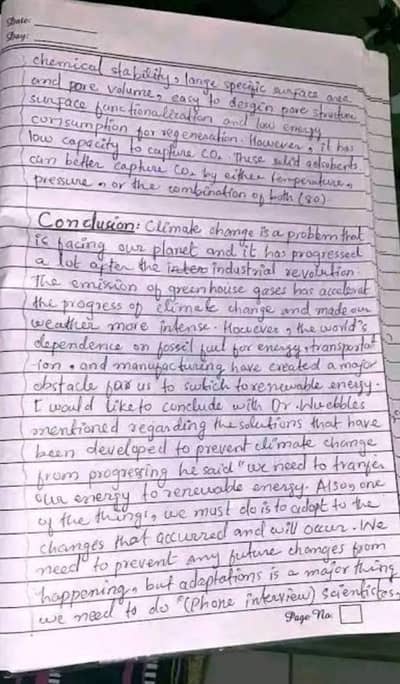 Date:
Day:
chemical stability, large specific surface area
and pore volume, easy to desgin pore structure
surface functionalization and low energy
consumption for regeneration. However, it has
low capacity to capture CO2. These solid adsorbents
can better capture CO2 by either temperature,
pressure, or the combination of both (80)
Conclusion: Climate change is a problem that
is facing our planet and it has progressed
a lot after the industrial revolution.
The emission of greenhouse gases has accelerat
the progress of climate change and made our
weather more intense. However, the world's
dependence on fossil fuel for energy, transportat
-ion, and manufacturing have created a major
obstacle for us to switch to renewable energy.
I would like to conclude with Dr. Wuebbles
mentioned regarding the solutions that have
been developed to prevent climate change
from progressing he said "we need to
our energy to renewable energy. Also, one
of the things, we must do is to adapt to the
changes that accurred and will occur. We
need to prevent any future changes from
happening, but adaptations is a major thing
we need to do "(Phone interview) Scientists
Page No: